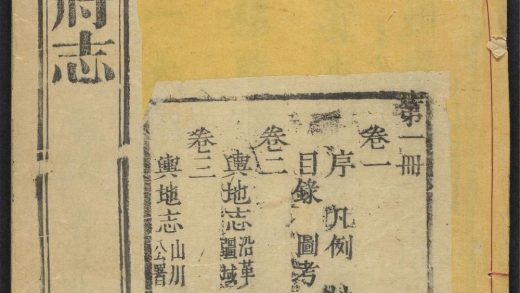 府志
第一冊
卷一
序 凡例
目錄 圖考
卷二
輿地志 沿革 疆域
卷三
輿地志 山川 公署